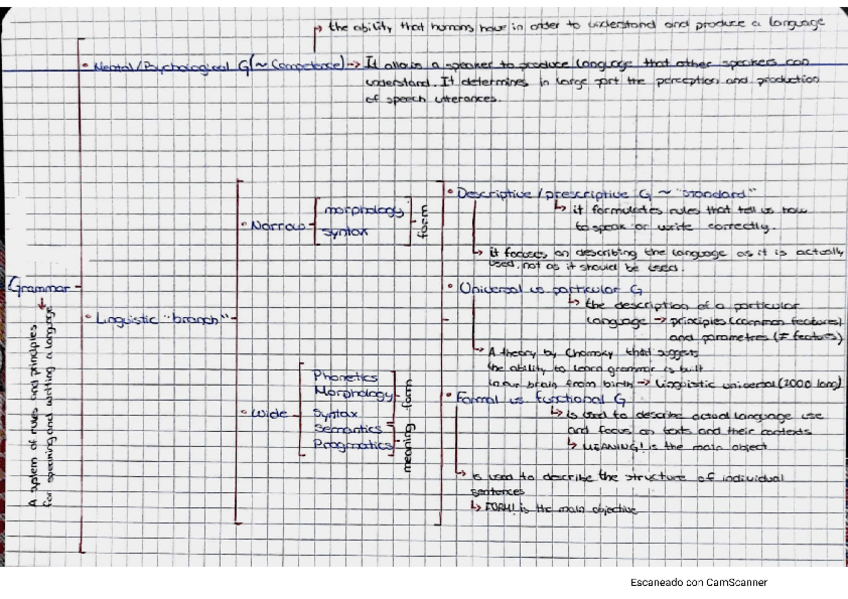 the ability that humans have in order to understand and produce a language
• Mental/Psychological G (~ Competence) → It allows a speaker to produce language that other speakers can
understand. It determines in large part the perception and production
of speech utterances.
• Descriptive / prescriptive G ~ "standard"
↳ it formulates rules that tell us how
to speak or write correctly.
↳ it focuses on describing the language as it is actually
used, not as it should be used.
• Narrow
morphology
syntax
form
• Universal vs particular G
↳ the description of a particular
language → principles (common features)
and parametres (≠ features)
↳ A theory by Chomsky that suggests
the ability to learn grammar is built
in our brain from birth → Linguistic universal (2000 long)
Grammar
A system of rules and principles
for speaking and writing a language
• Linguistic "branch"
• Wide
Phonetics
Morphology
Syntax
Semantics
Pragmatics
form
meaning
• Formal vs functional G
↳ is used to describe actual language use
and focus on texts and their contexts
↳ MEANING! is the main object
↳ is used to describe the structure of individual
sentences
↳ FORM! is the main objective
Escaneado con CamScanner